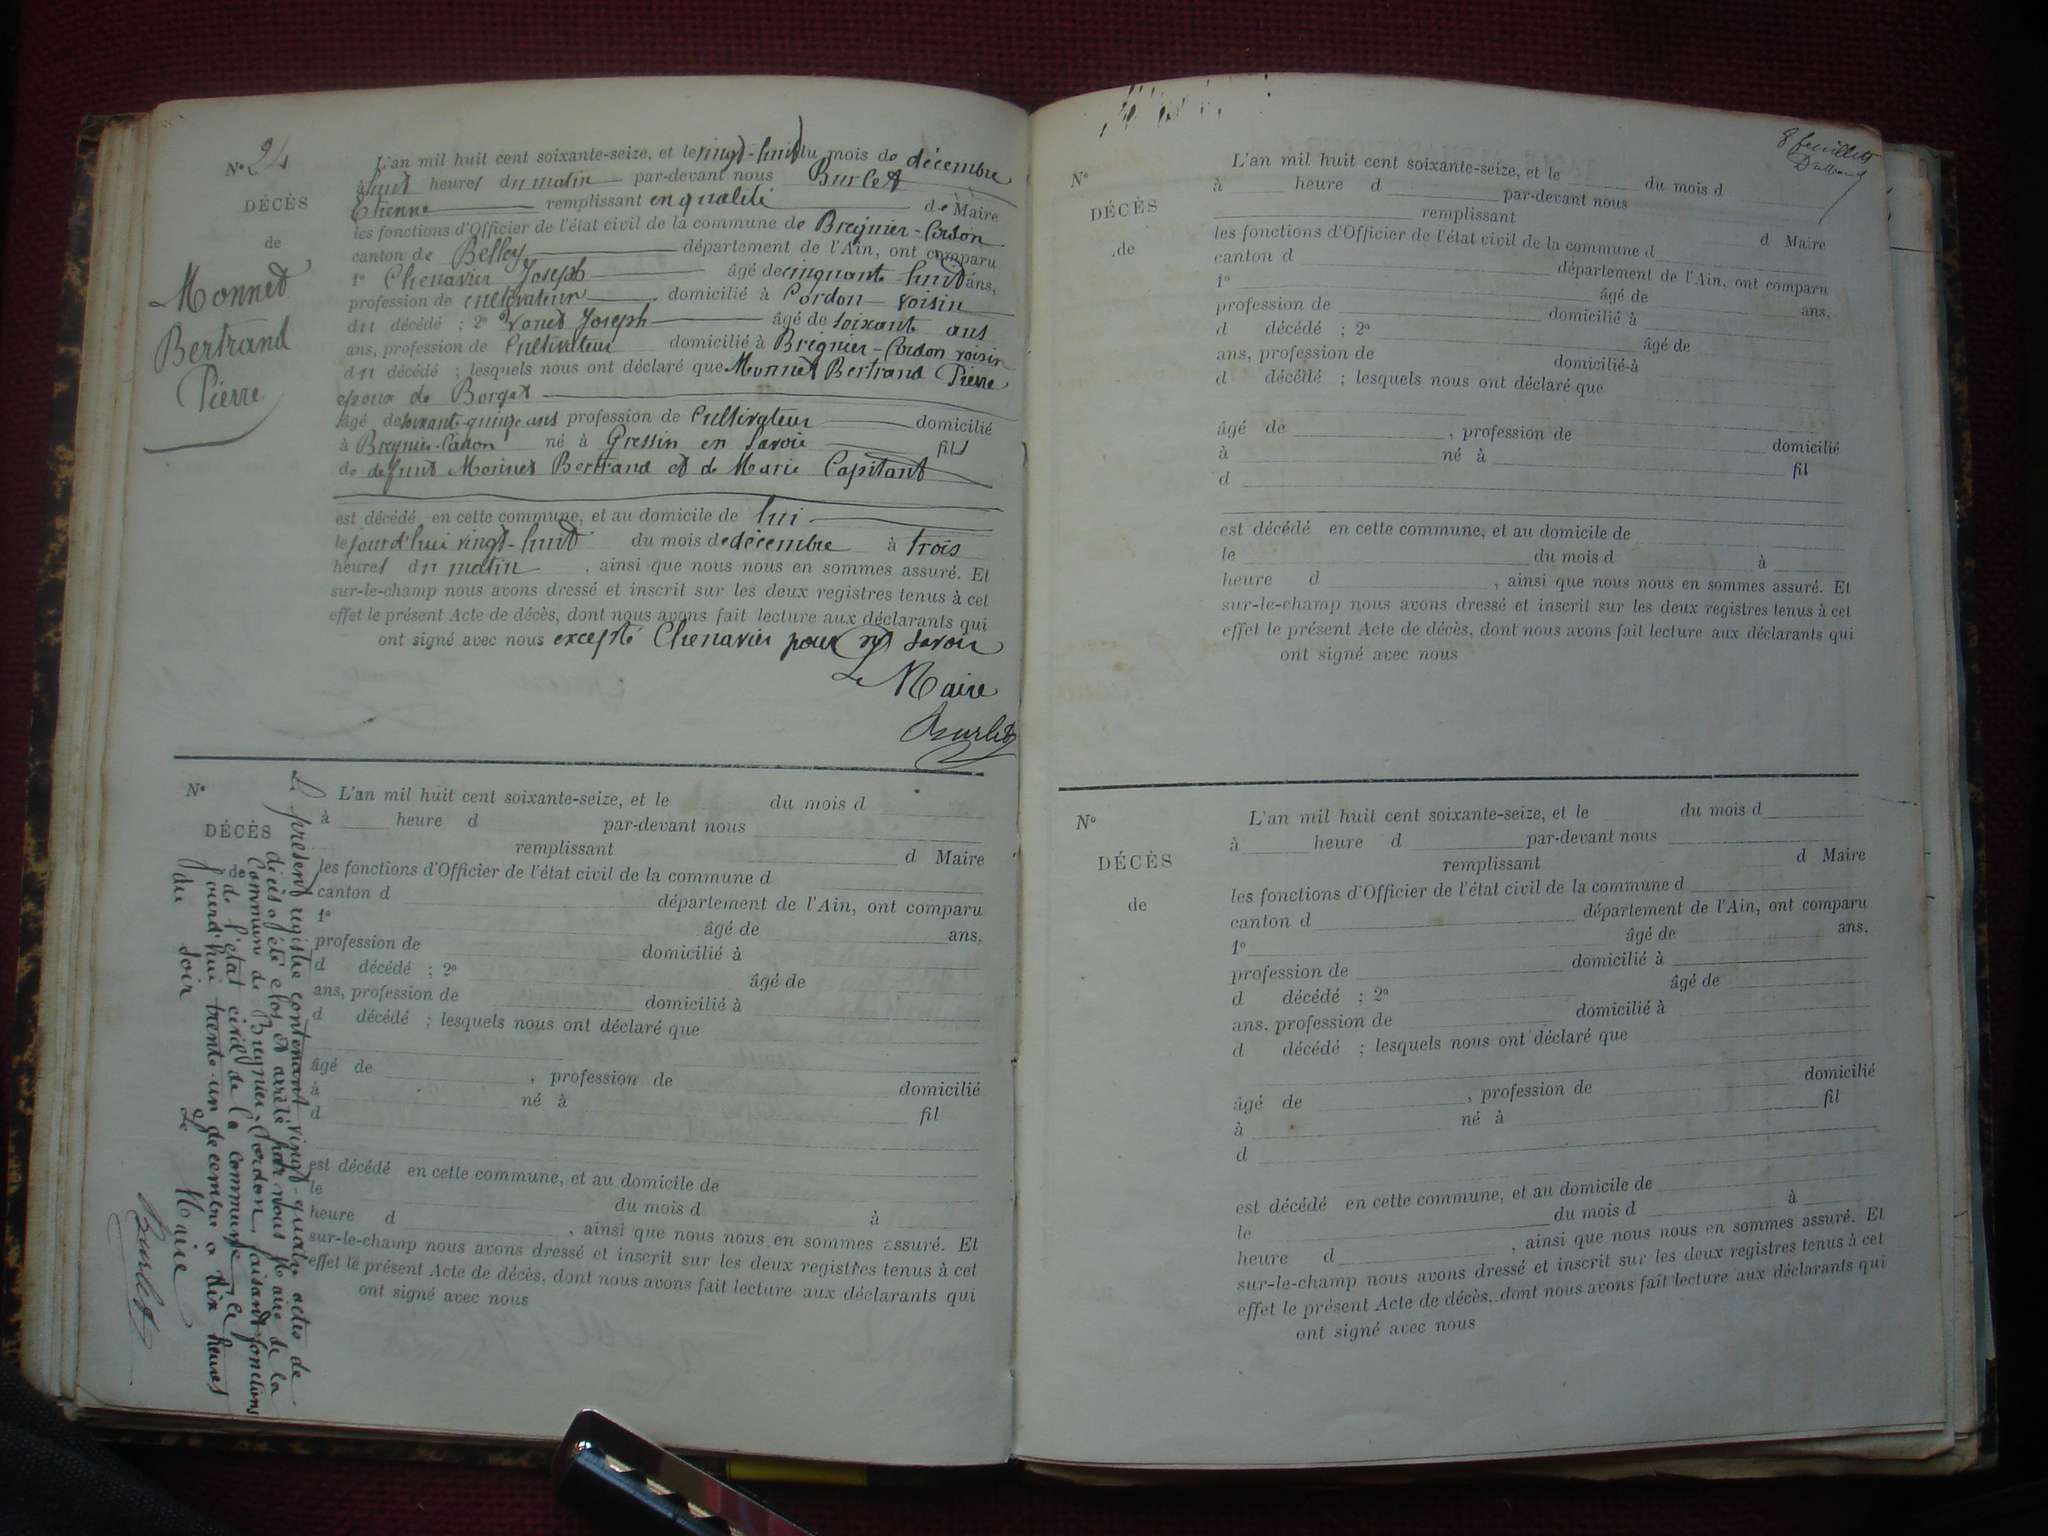 N° 24
DÉCÈS
de
Monnet
Bertrand
Pierre
L'an mil huit cent soixante-seize, et le vingt-huit du mois de décembre
à huit heures du matin par-devant nous Burlet
Etienne remplissant en qualité de Maire
les fonctions d'Officier de l'état civil de la commune de Bregnier-Cordon
canton de Belley département de l'Ain, ont comparu
1° Chenavier Joseph âgé de cinquante huit ans,
profession de cultivateur domicilié à Cordon voisin
du décédé ; 2° Joseph âgé de soixant ans
ans, profession de Cultivateur domicilié à Brégnier-Cordon voisin
du décédé ; lesquels nous ont déclaré que Monnet Bertrand Pierre
epoux de Borget
âgé de soixant-quinze ans profession de Cultivateur domicilié
à Bregnier-Cordon né à Gressin en Savoie fils
de defunt Monnet Bertrand et de Marie Capitant
est décédé en cette commune, et au domicile de lui
le jourd'hui vingt-huit du mois de décembre à trois
heures du matin , ainsi que nous nous en sommes assuré. Et
sur-le-champ nous avons dressé et inscrit sur les deux registres tenus à cet
effet le présent Acte de décès, dont nous avons fait lecture aux déclarants qui
ont signé avec nous excepté Chenavier pour ne savoir
Le Maire
Burlet
N°
DÉCÈS
de
L'an mil huit cent soixante-seize, et le du mois d
à heure d par-devant nous
remplissant d Maire
les fonctions d'Officier de l'état civil de la commune d
canton d département de l'Ain, ont comparu
1° âgé de ans,
profession de domicilié à
d décédé ; 2° âgé de
ans, profession de domicilié à
d décédé ; lesquels nous ont déclaré que
âgé de , profession de domicilié
à né à fil
d
est décédé en cette commune, et au domicile de
le du mois d à
heure d , ainsi que nous nous en sommes assuré. Et
sur-le-champ nous avons dressé et inscrit sur les deux registres tenus à cet
effet le présent Acte de décès, dont nous avons fait lecture aux déclarants qui
ont signé avec nous
Le présent registre contenant vingt-quatre actes de
décés a été clos et arrêté par nous Maire de la
Commune de Bregnier-Cordon faisant fonctions
de l'état civil de la commune le
jourd'hui trente-un decembre a six heures
du soir Le Maire
Burlet
8 feuillets
N°
DÉCÈS
de
L'an mil huit cent soixante-seize, et le du mois d
à heure d par-devant nous
remplissant d Maire
les fonctions d'Officier de l'état civil de la commune d
canton d département de l'Ain, ont comparu
1° âgé de ans,
profession de domicilié à
d décédé ; 2° âgé de
ans, profession de domicilié à
d décédé ; lesquels nous ont déclaré que
âgé de , profession de domicilié
à né à fil
d
est décédé en cette commune, et au domicile de
le du mois d à
heure d , ainsi que nous nous en sommes assuré. Et
sur-le-champ nous avons dressé et inscrit sur les deux registres tenus à cet
effet le présent Acte de décès, dont nous avons fait lecture aux déclarants qui
ont signé avec nous
N°
DÉCÈS
de
L'an mil huit cent soixante-seize, et le du mois d
à heure d par-devant nous
remplissant d Maire
les fonctions d'Officier de l'état civil de la commune d
canton d département de l'Ain, ont comparu
1° âgé de ans,
profession de domicilié à
d décédé ; 2° âgé de
ans, profession de domicilié à
d décédé ; lesquels nous ont déclaré que
âgé de , profession de domicilié
à né à fil
d
est décédé en cette commune, et au domicile de
le du mois d à
heure d , ainsi que nous nous en sommes assuré. Et
sur-le-champ nous avons dressé et inscrit sur les deux registres tenus à cet
effet le présent Acte de décès, dont nous avons fait lecture aux déclarants qui
ont signé avec nous